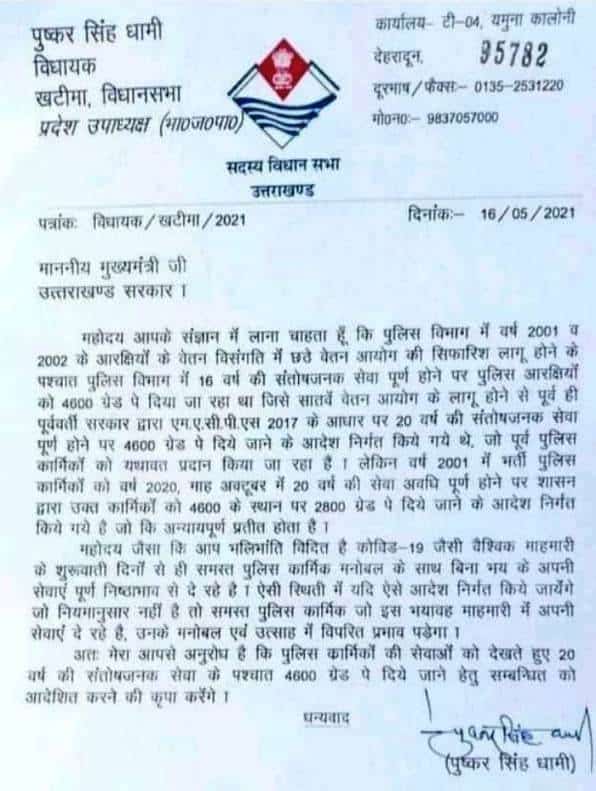 पुष्कर सिंह धामी
विधायक
खटीमा, विधानसभा
प्रदेश उपाध्यक्ष (भा०ज०पा०)
सदस्य विधान सभा
उत्तराखण्ड
कार्यालय- टी-04, यमुना कालोनी
देहरादून, 95782
दूरभाष/फैक्स:- 0135-2531220
मो०न०:- 9837057000
पत्रांक: विधायक/खटीमा/2021
दिनांक:- 16/05/2021
माननीय मुख्यमंत्री जी
उत्तराखण्ड सरकार ।
महोदय आपके संज्ञान में लाना चाहता हूँ कि पुलिस विभाग में वर्ष 2001 व
2002 के आरक्षियों के वेतन विसंगति में छठे वेतन आयोग की सिफारिश लागू होने के
पश्चात पुलिस विभाग में 16 वर्ष की संतोषजनक सेवा पूर्ण होने पर पुलिस आरक्षियों
को 4600 ग्रेड पे दिया जा रहा था जिसे सातवें वेतन आयोग के लागू होने से पूर्व ही
पूर्ववर्ती सरकार द्वारा एम.ए.सी.पी.एस 2017 के आधार पर 20 वर्ष की संतोषजनक सेवा
पूर्ण होने पर 4600 ग्रेड पे दिये जाने के आदेश निर्गत किये गये थे, जो पूर्व पुलिस
कार्मिकों को यथावत प्रदान किया जा रहा है । लेकिन वर्ष 2001 में भर्ती पुलिस
कार्मिकों को वर्ष 2020, माह अक्टूबर में 20 वर्ष की सेवा अवधि पूर्ण होने पर शासन
द्वारा उक्त कार्मिकों को 4600 के स्थान पर 2800 ग्रेड पे दिये जाने के आदेश निर्गत
किये गये है जो कि अन्यायपूर्ण प्रतीत होता है ।
महोदय जैसा कि आप भलिभांति विदित है कोविड-19 जैसी वैश्विक माहमारी
के शुरूवाती दिनों से ही समस्त पुलिस कार्मिक मनोबल के साथ बिना भय के अपनी
सेवाएं पूर्ण निष्ठाभाव से दे रहे है । ऐसी स्थिती में यदि ऐसे आदेश निर्गत किये जायेंगे
जो नियमानुसार नहीं है तो समस्त पुलिस कार्मिक जो इस भयावह माहमारी में अपनी
सेवाएं दे रहे है, उनके मनोबल एवं उत्साह में विपरित प्रभाव पड़ेगा ।
अतः मेरा आपसे अनुरोध है कि पुलिस कार्मिकों की सेवाओं को देखते हुए 20
वर्ष की संतोषजनक सेवा के पश्चात 4600 ग्रेड पे दिये जाने हेतु सम्बन्धित को
आदेशित करने की कृपा करेंगे ।
धन्यवाद
(पुष्कर सिंह धामी)